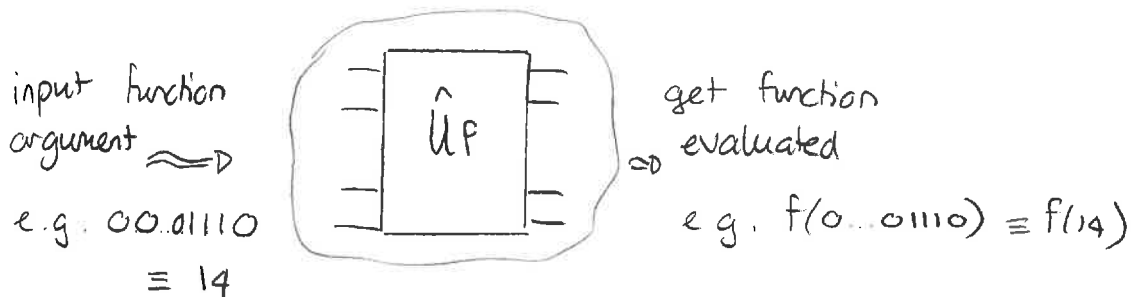 input function
argument
e.g. 00..01110
≡ 14
Û_f
get function
evaluated
e.g. f(0...01110) ≡ f(14)